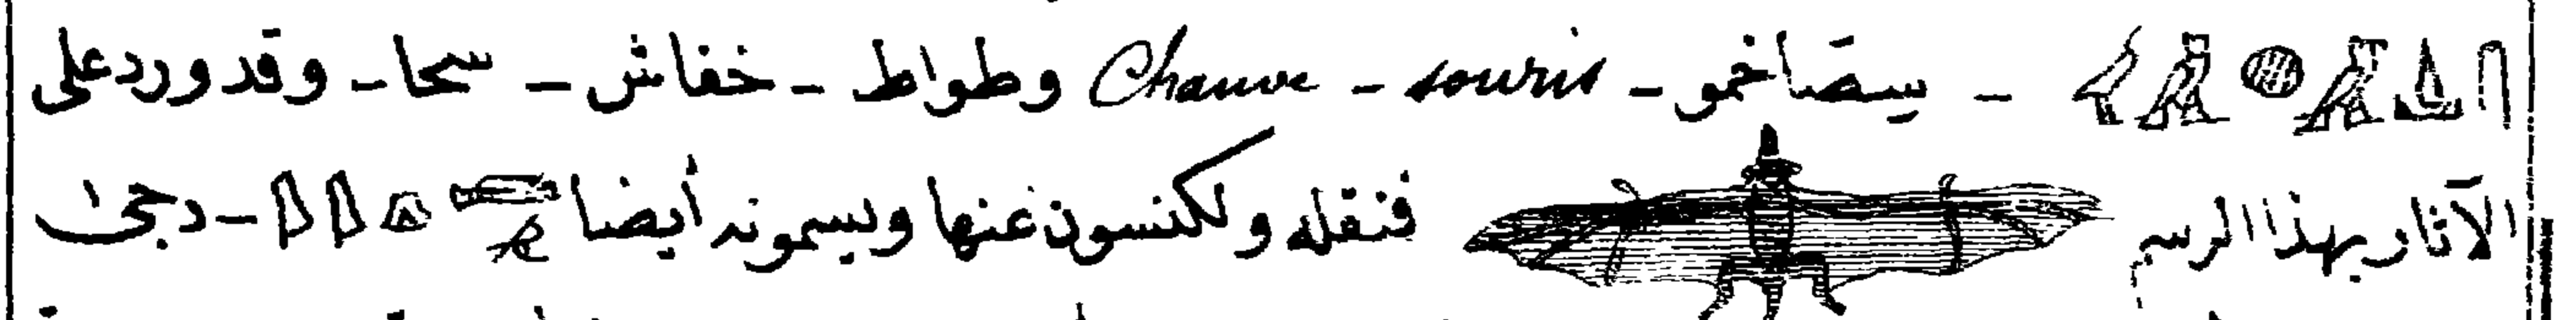 سقاخمو - Chauve - souris وطواط - خفاش - سحا - وقد ورد على
الآثار بهذا الرسم فنقله ولكنسون عنها ويسمونه أيضا - دجى